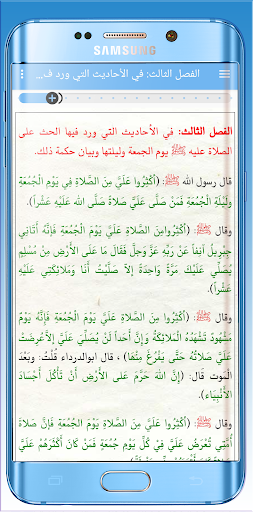 SAMSUNG
الفصل الثالث: في الأحاديث التي ورد ف...
الفصل الثالث: في الأحاديث التي ورد فيها الحث على
الصلاة عليه ﷺ يوم الجمعة وليلتها وبيان حكمة ذلك.
قال رسول الله ﷺ: (أَكْثِرُوا عَلَيَّ مِنَ الصَّلاةِ فِي يَوْمِ الْجُمُعَةِ
وَلَيْلَةِ الْجُمُعَةِ فَمَنْ صَلَّى عَلَيَّ صَلاةً صَلَّى الله عَلَيْهِ عَشْراً).
وقال ﷺ: (أَكْثِرُوامِنَ الصَّلاةِ عَلَيَّ يَوْمَ الْجُمُعَةِ فَإِنَّهُ أَتَانِي
جِبْرِيلُ آنِفاً عَنْ رَبِّهِ عَزَّ وَجَلَّ فَقَالَ مَا عَلَى الأَرْضِ مِنْ مُسْلِمٍ
يُصَلِّي عَلَيْكَ مَرَّةً وَاحِدَةً إِلاَّ صَلَّيْتُ أَنَا وَمَلائِكَتِي عَلَيْهِ
عَشْراً).
وقال ﷺ: (أَكْثِرُوا مِنَ الصَّلاةِ عَلَيَّ يَوْمَ الْجُمُعَةِ فَإِنَّهُ يَوْمٌ
مَشْهُودٌ تَشْهَدُهُ الْمَلائِكَةُ وَإِنَّ أَحَداً لَنْ يُصَلِّيَ عَلَيَّ إِلاَّعُرِضَتْ
عَلَيَّ صَلاتُهُ حَتَّى يَفْرُغَ مِنْهَا) ، قال ابوالدرداء قُلْتُ: وَبَعْدَ
الْمَوت قال: (إِنَّ اللَّهَ حَرَّمَ عَلَى الأَرْضِ أَنْ تَأْكُلَ أَجْسَادَ
الأَنْبِيَاءِ).
وقال ﷺ: (أَكْثِرُوا مِنَ الصَّلاةِ عَلَيَّ يَوْمَ الْجُمُعَةِ فَإِنَّ صَلاةَ
أُمَّتِي تُعْرَضُ عَلَيَّ فِي كُلِّ يَوْمِ جُمُعَةٍ فَمَنْ كَانَ أَكْثَرَهُمْ عَلَيَّ